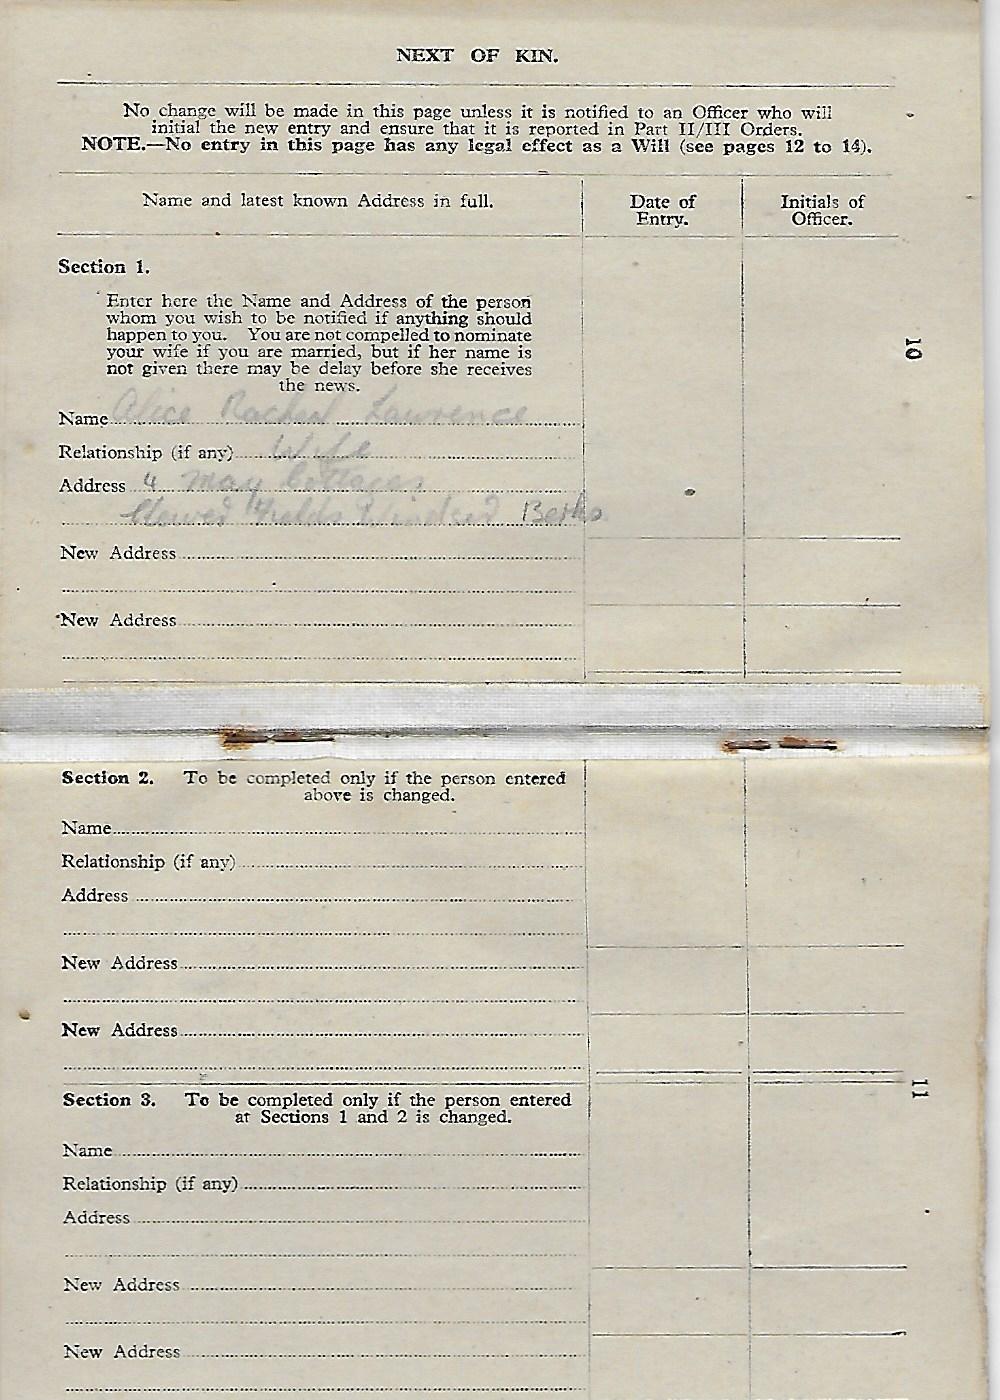 NEXT OF KIN.
No change will be made in this page unless it is notified to an Officer who will
initial the new entry and ensure that it is reported in Part II/III Orders.
NOTE.—No entry in this page has any legal effect as a Will (see pages 12 to 14).
Name and latest known Address in full.
Date of
Entry.
Initials of
Officer.
Section 1.
Enter here the Name and Address of the person
whom you wish to be notified if anything should
happen to you. You are not compelled to nominate
your wife if you are married, but if her name is
not given there may be delay before she receives
the news.
Name Alice Rachel Lawrence
Relationship (if any) Wife
Address 4 May Cottages
Fields Windsor Berks
New Address
New Address
10
Section 2. To be completed only if the person entered
above is changed.
Name
Relationship (if any)
Address
New Address
New Address
11
Section 3. To be completed only if the person entered
at Sections 1 and 2 is changed.
Name
Relationship (if any)
Address
New Address
New Address